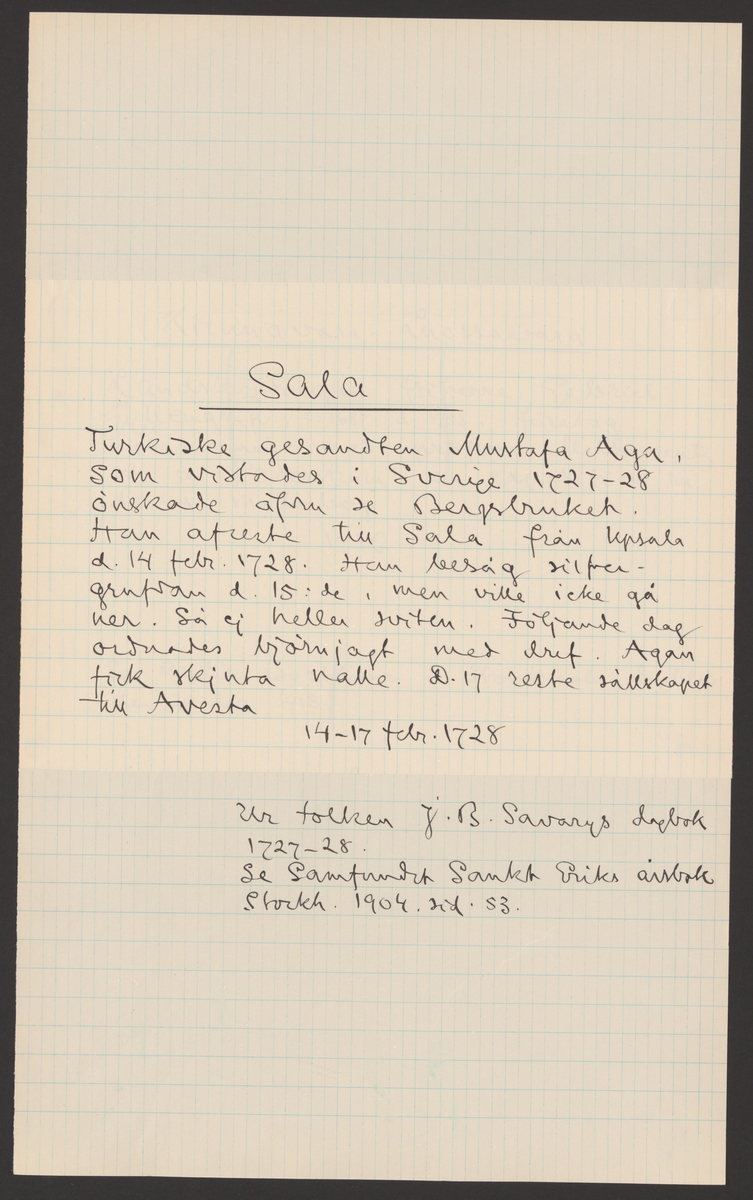 Sala
Turkiske gesandten Mustafa Aga,
som vistades i Sverige 1727-28
önskade äfven se Bergsbruket.
Han afreste till Sala från Upsala
d. 14 febr. 1728. Han besåg silfver-
grufvan d. 15:de, men ville icke gå
ner. Så ej heller sviten. Följande dag
ordnades björnjagt med dref. Agan
fick skjuta nalle. D. 17 reste sällskapet
till Avesta
14-17 febr. 1728
Ur tolken J. B. Savarys dagbok
1727-28.
Se Samfundet Sankt Eriks årsbok
Stockh. 1904. sid. 53.